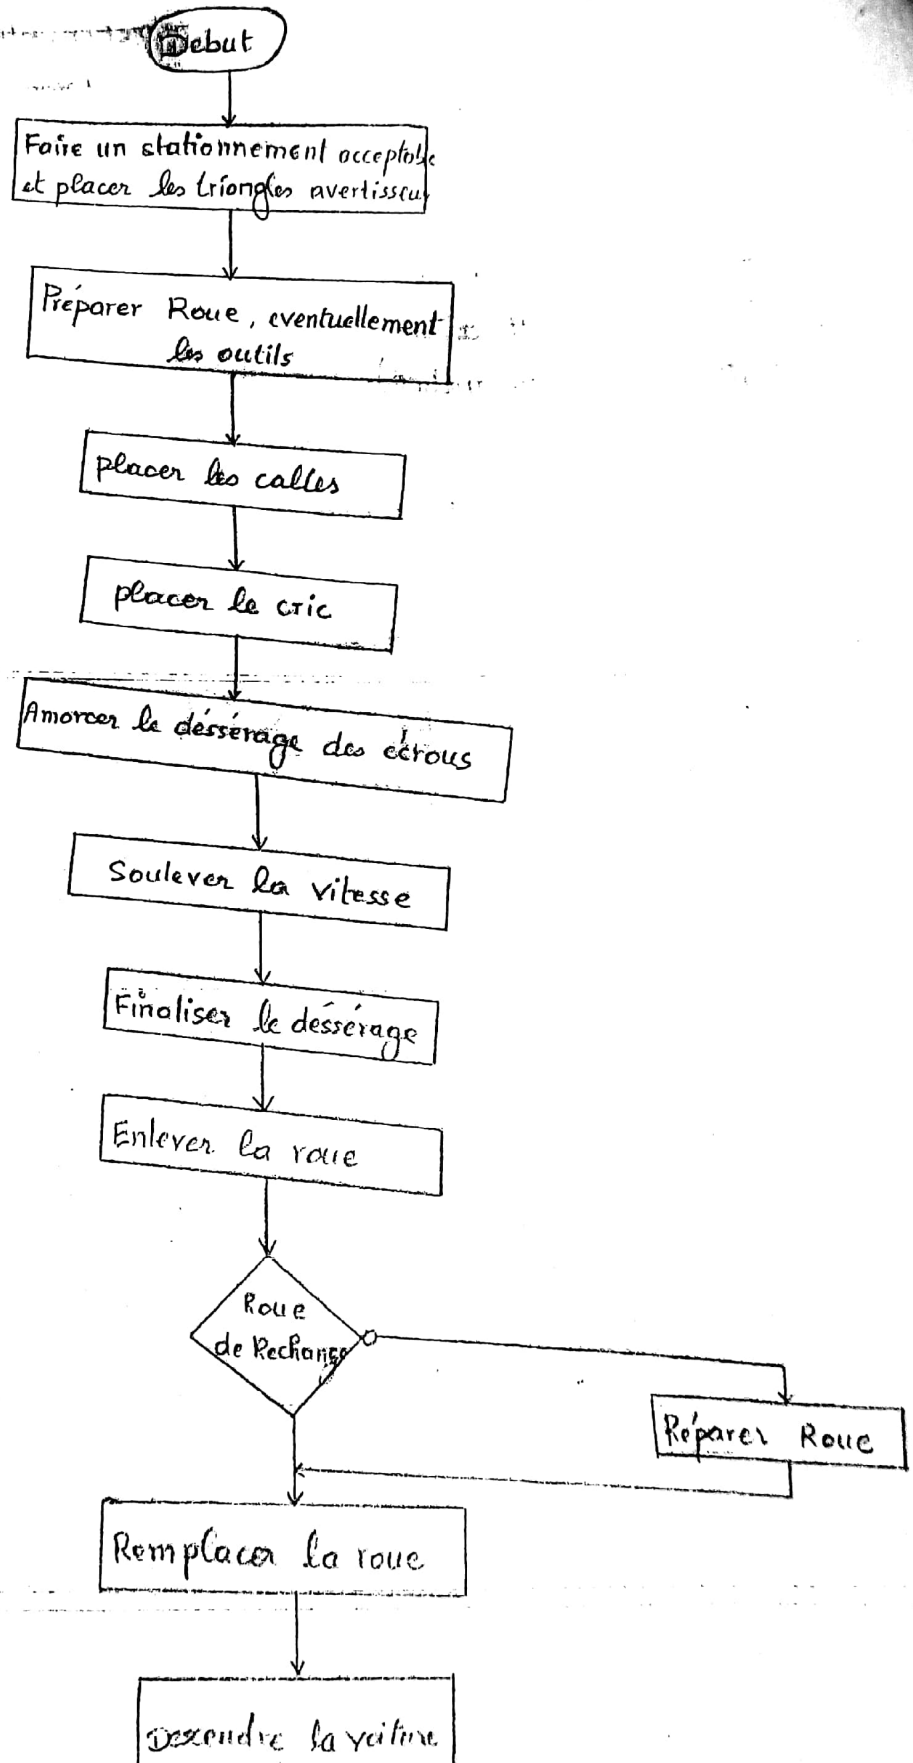 Debut
Faire un stationnement acceptable
et placer les triangles avertisseur
Préparer Roue, eventuellement
les outils
placer les calles
placer le cric
Amorcer le désserage des écrous
Soulever la vitesse
Finaliser le déssérage
Enlever la roue
Roue
de Rechange
Réparer Roue
Remplacer la roue
Descendre la voiture